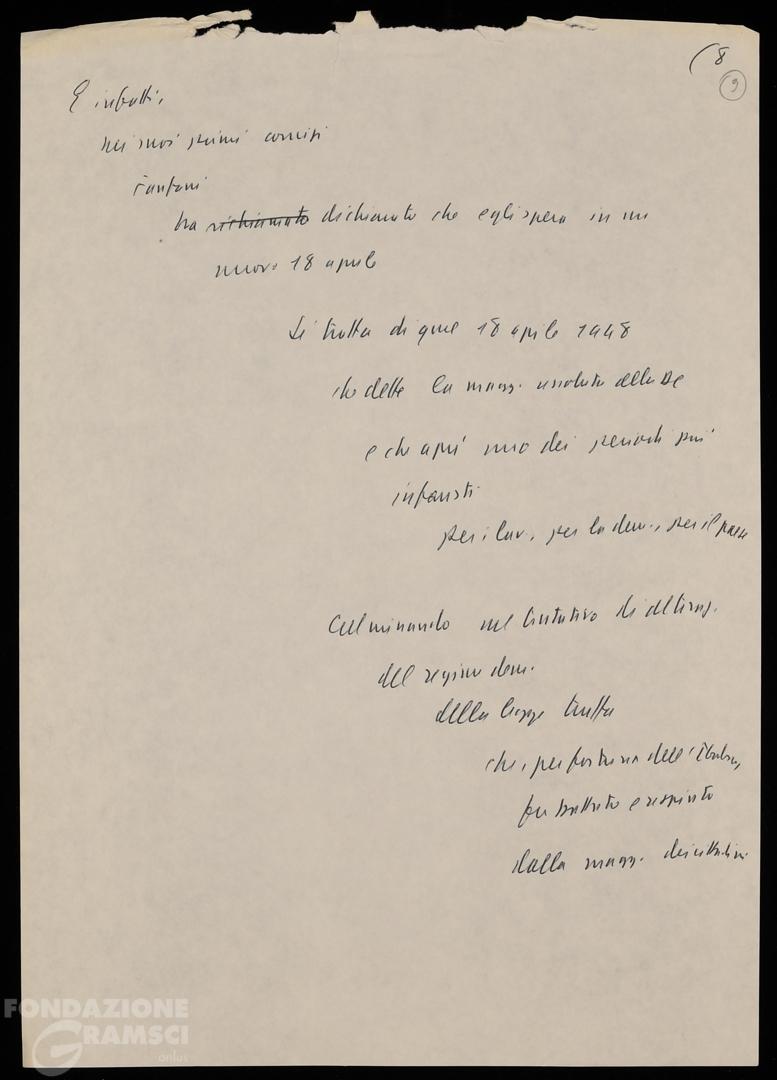 (8
9
E infatti,
nei suoi primi comizi
Fanfani
ha richiamato dichiarato che egli spera in un
nuovo 18 aprile
Si tratta di quel 18 aprile 1948
che dette la magg. assoluta alla DC
e che aprì uno dei periodi più
infausti
per i lav., per la dem., per il paese
Culminando nel tentativo di alteraz.
del regime dem.
della legge truffa
che, per fortuna dell'Italia,
fu battuto e respinto
dalla magg. dei cittadini
FONDAZIONE
GRAMSCI
onlus